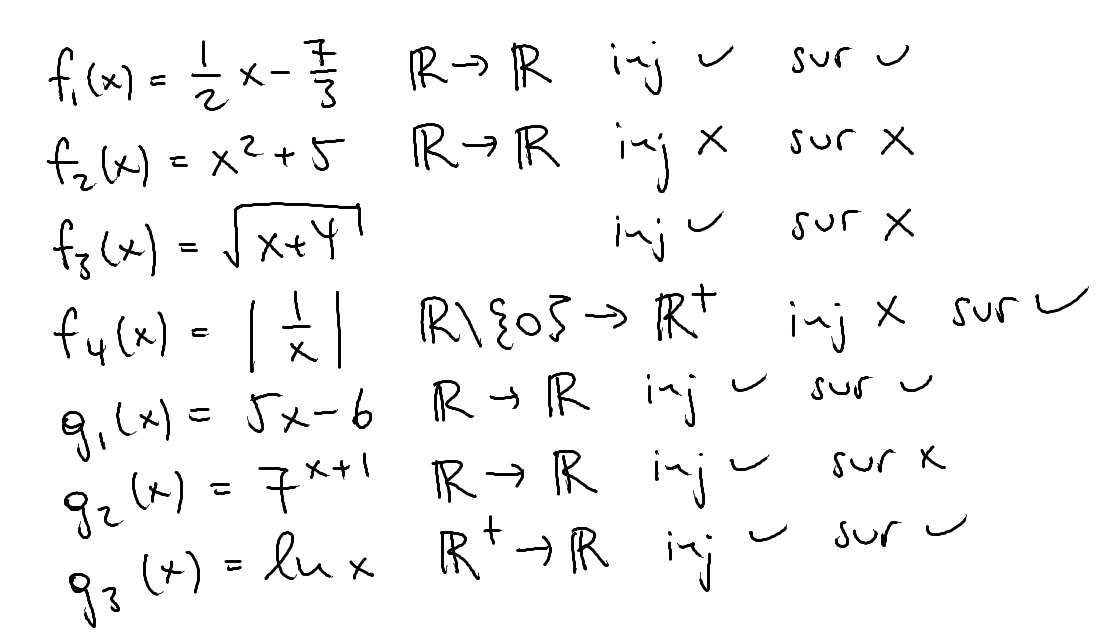 f₁(x) = 1/2 x − 7/3 ℝ → ℝ inj ✓ sur ✓
f₂(x) = x² + 5 ℝ → ℝ inj ✗ sur ✗
f₃(x) = √(x+4) inj ✓ sur ✗
f₄(x) = |1/x| ℝ\{0} → ℝ⁺ inj ✗ sur ✓
g₁(x) = 5x − 6 ℝ → ℝ inj ✓ sur ✓
g₂(x) = 7ˣ⁺¹ ℝ → ℝ inj ✓ sur ✗
g₃(x) = ln x ℝ⁺ → ℝ inj ✓ sur ✓